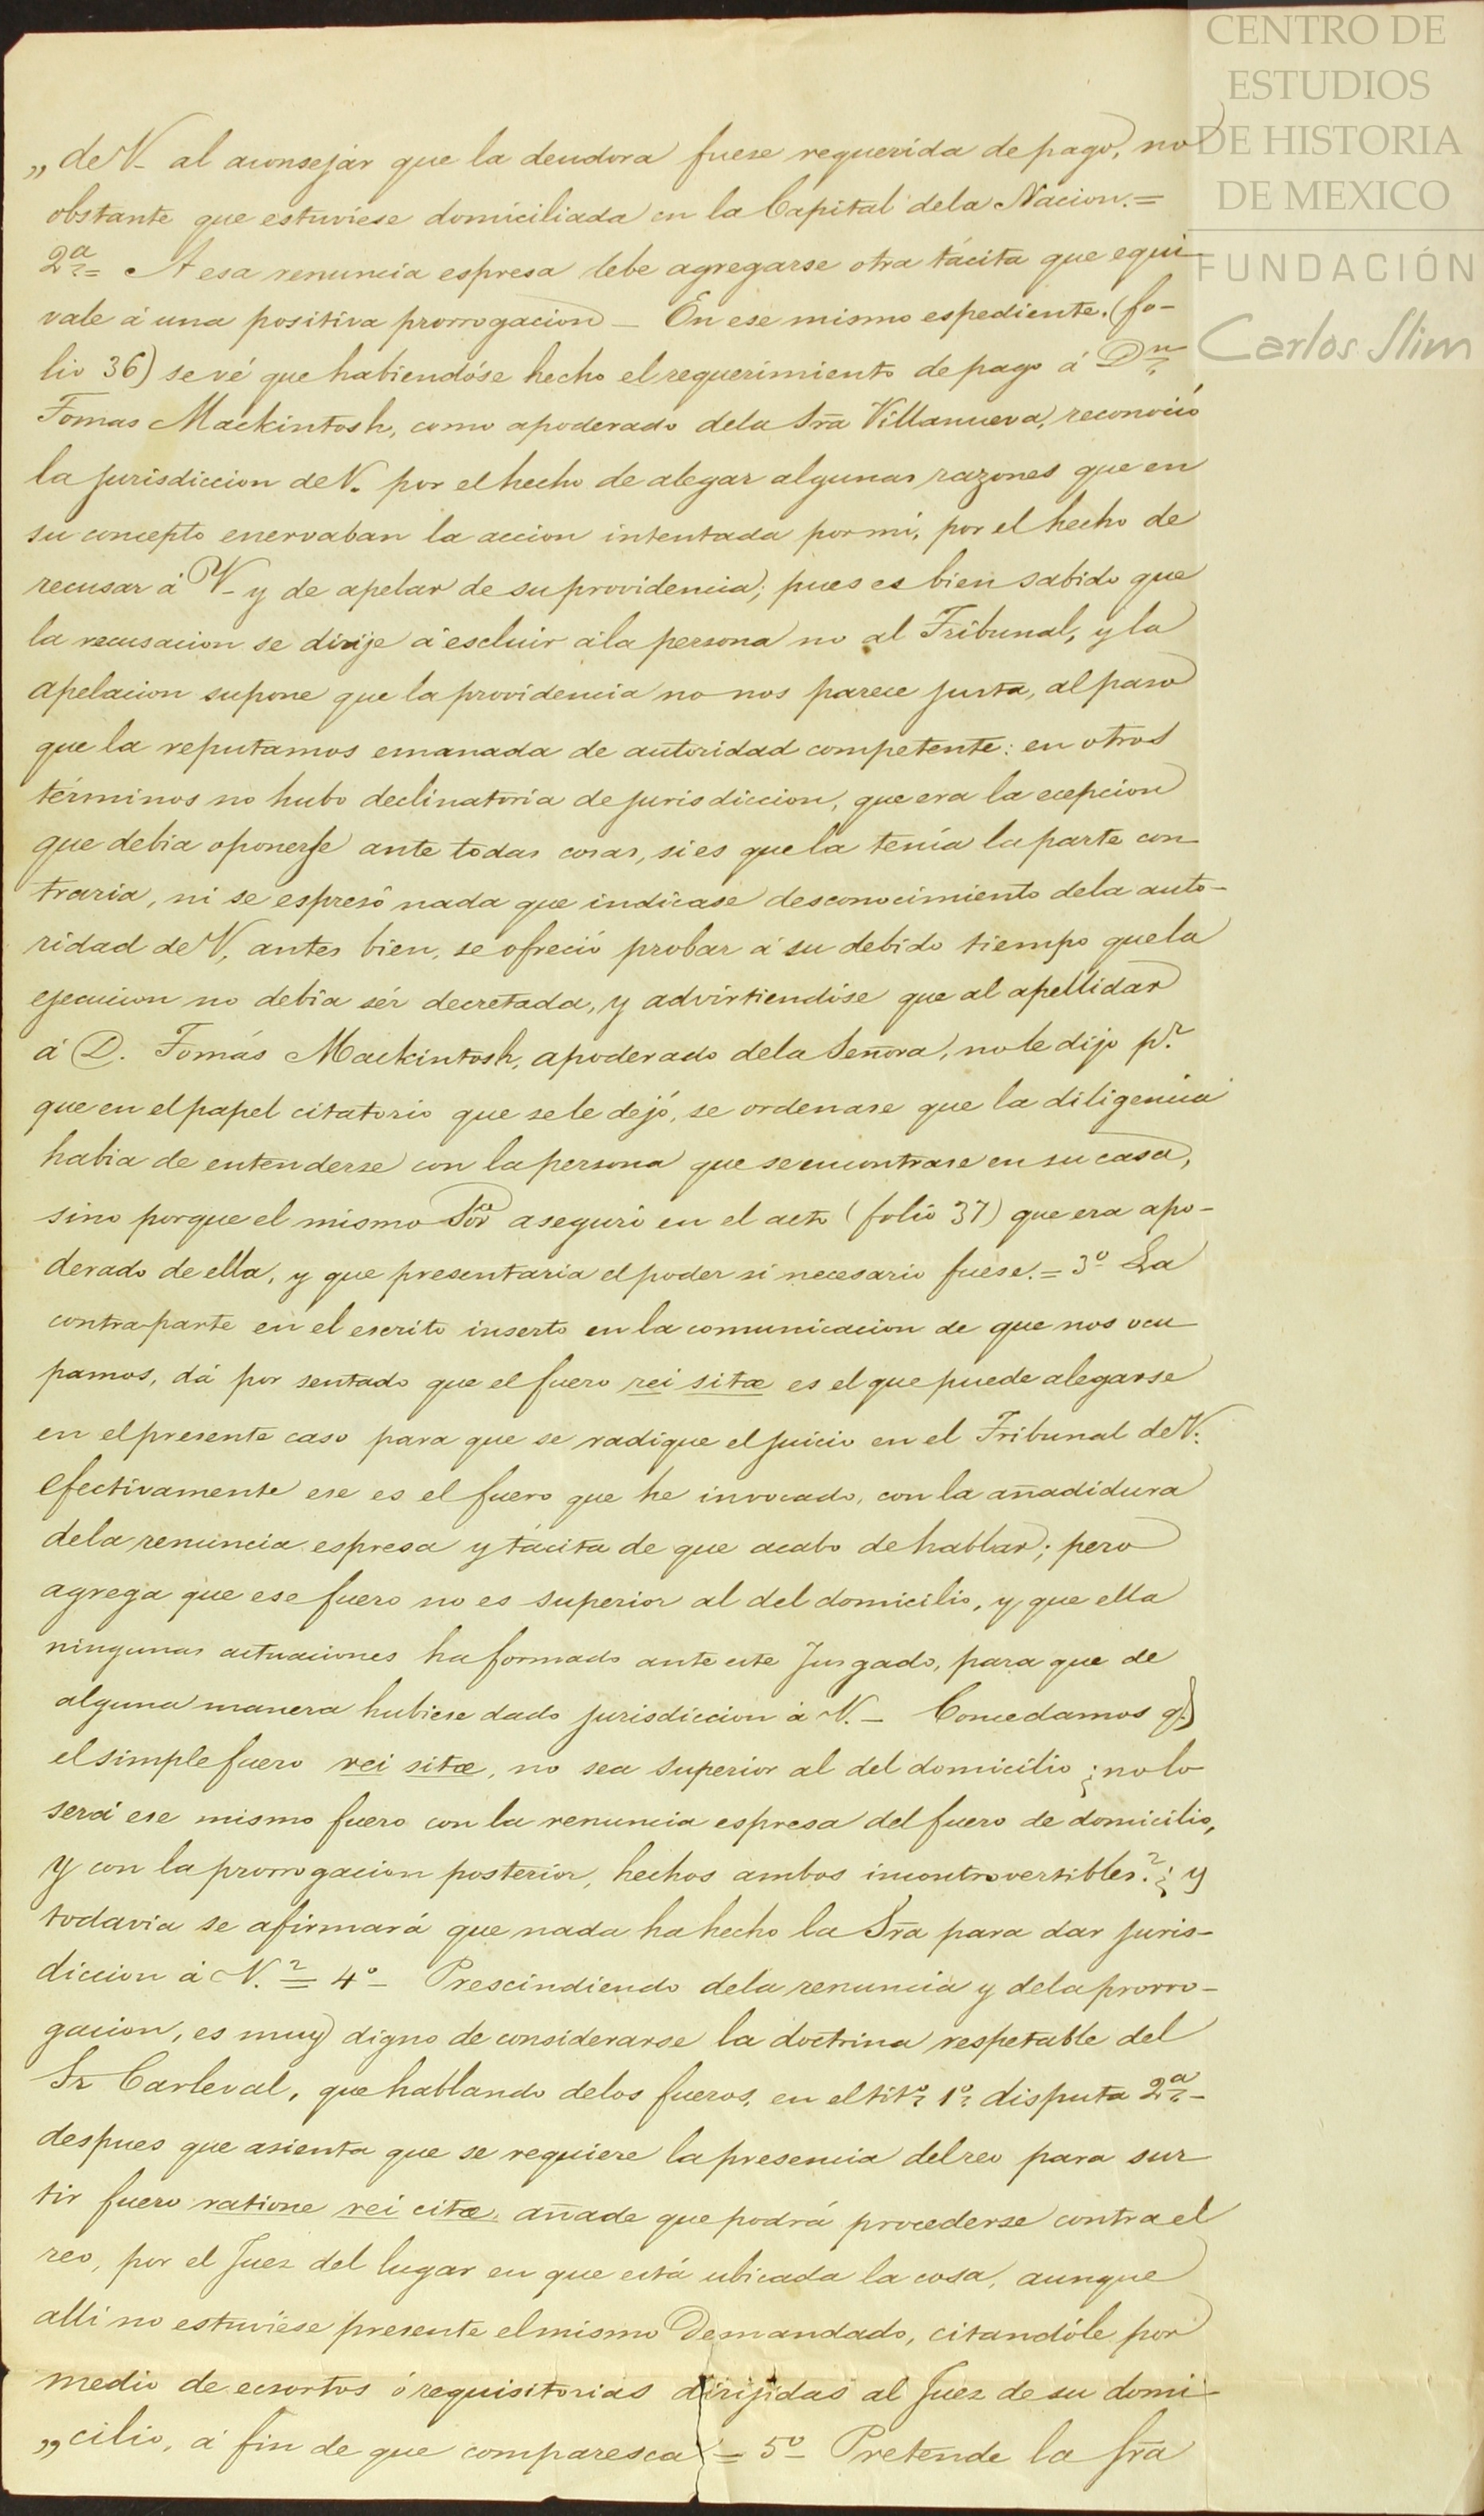 CENTRO DE
ESTUDIOS
DE HISTORIA
DE MEXICO
FUNDACIÓN
Carlos Slim
„ de V. al aconsejar que la deudora fuese requerida de pago, no
obstante que estuviese domiciliada en la Capital dela Nacion.=
2ª= A esa renuncia espresa debe agregarse otra tácita que equi-
vale á una positiva prorrogacion_ En ese mismo espediente. (fo-
lio 36) se vé que habiendóse hecho el requerimiento de pago á Dn
Tomas Mackintosh, como apoderado dela Sra Villanueva, reconoció
la jurisdiccion de V. por el hecho de alegar algunas razones que en
su concepto enervaban la accion intentada por mi, por el hecho de
recusar á V- y de apelar de su providencia; pues es bien sabido que
la recusacion se dirije á escluir ála persona no al Tribunal, y la
apelacion supone que la providencia no nos parece justa, al paso
que la reputamos emanada de autoridad competente: en otros
términos no hubo declinatoria de jurisdiccion, que era la ecepcion
que debia oponerse ante todas cosas, si es que la tenía la parte con-
traria, ni se espresó nada que indicase desconocimiento dela auto-
ridad de V, antes bien, se ofreció probar á su debido tiempo que la
ejecucion no debia sér decretada, y advirtiendóse que al apellidar
á D. Tomás Mackintosh, apoderado dela Señora, no le dijo pr.
que en el papel citatorio que se le dejó, se ordenase que la diligencia
habia de entenderse con la persona que se encontrase en su casa,
sino porque el mismo Sor aseguró en el acto (folio 37) que era apo-
derado de ella, y que presentaria el poder si necesario fuese.= 3º La
contraparte en el escrito inserto en la comunicacion de que nos ocu-
pamos, dá por sentado que el fuero rei sitæ es el que puede alegarse
en el presente caso para que se radique el juicio en el Tribunal de V.
efectivamente ese es el fuero que he invocado, con la añadidura
dela renuncia espresa y tácita de que acabo de hablar; pero
agrega que ese fuero no es superior al del domicilio, y que ella
ningunas actuaciones ha formado ante este Jusgado, para que de
alguna manera hubiese dado jurisdiccion á V._ Concedamos q.
el simple fuero rei sitæ, no sea superior al del domicilio ¿no lo
será ese mismo fuero con la renuncia espresa del fuero de domicilio,
y con la prorrogacion posterior, hechos ambos incontrovertibles? ¿y
todavia se afirmará que nada ha hecho la Sra para dar juris-
diccion á V.? = 4º- Prescindiendo dela renuncia y dela prorro-
gacion, es muy digno de considerarse la doctrina respetable del
Sr Carleval, que hablando delos fueros, en el titº 1º disputa 2ª-
despues que asienta que se requiere la presencia del reo para sur-
tir fuero ratione rei citæ, añade que podrá procederse contra el
reo, por el Juez del lugar en que está ubicada la cosa, aunque
alli no estuviese presente el mismo Demandado, citandóle por
medio de ecsortos ó requisitorias dirijidas al Juez de su domi-
„ cilio, á fin de que comparesca = 5º- Pretende la Sra